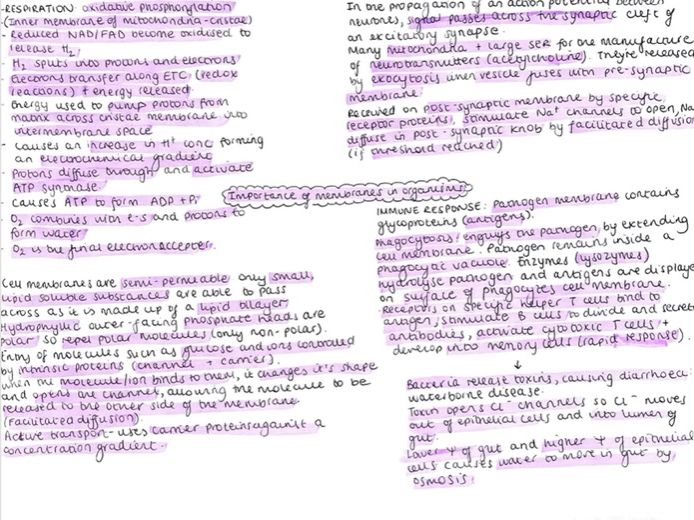 -RESPIRATION: oxidative phosphorylation
-(Inner membrane of mitochondria-cristae)
- Reduced NAD/FAD become oxidised to
release H₂
- H₂ splits into protons and electrons
- Electrons transfer along ETC (redox
reactions) + energy released
- Energy used to pump protons from
matrix across cristae membrane into
intermembrane space
- Causes an increase in H⁺ conc forming
an electrochemical gradient
- Protons diffuse through and activate
ATP synthase.
- Causes ATP to form ADP + Pi
- O₂ combines with e-s and protons to
form water
- O₂ is the final electron acceptor.
Cell membranes are semi-permeable only small,
lipid soluble substances are able to pass
across as it is made up of a lipid bilayer
Hydrophyllic outer-facing phosphate heads are
polar, so repel polar molecules (only non-polar).
Entry of molecules such as glucose and ions controlled
by intrinsic proteins (channel + carrier).
when the molecule/ion binds to them, it changes it's shape
and opens the channel, allowing the molecule to be
released to the other side of the membrane
(facilitated diffusion).
Active transport-uses carrier proteins against a
concentration gradient.
Importance of membranes in organisms
In the propagation of an action potential between
neurones, signal passes across the synaptic cleft of
an excitatory synapse.
Many mitochondria + large SER for the manufacture
of neurotransmitters (acetylcholine). They're released
by exocytosis when vesicle fuses with pre-synaptic
membrane.
Received on post-synaptic membrane by specific
receptor proteins, stimulate Na⁺ channels to open, Na
diffuse in post-synaptic knob by facilitated diffusion
(if threshold reached)
IMMUNE RESPONSE: Pathogen membrane contains
glycoproteins (antigens).
Phagocytosis: engulfs the pathogen, by extending
cell membrane. Pathogen remains inside a
phagocytic vacuole. Enzymes (lysozymes)
hydrolyse pathogen and antigens are displaye
on surface of phagocytes cell membrane.
Receptors on specific helper T cells bind to
antigen, stimulate B cells to divide and secret
antibodies, activate cytotoxic T cells +
develop into memory cells (rapid response).
↓
Bacteria release toxins, causing diarrhoea:
waterborne disease.
Toxin opens Cl⁻ channels so Cl⁻ moves
out of epithelial cells and into lumen of
gut.
Lower Ψ of gut and higher Ψ of epithelial
cells causes water to move in gut by
osmosis.